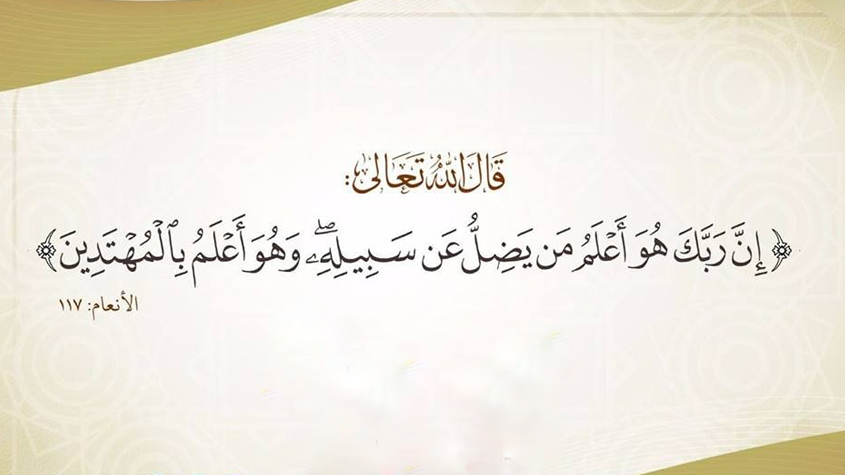 قَالَ اللهُ تَعَالَى:
﴿ إِنَّ رَبَّكَ هُوَ أَعْلَمُ مَن يَضِلُّ عَن سَبِيلِهِۦۖ وَهُوَ أَعْلَمُ بِٱلْمُهْتَدِينَ ﴾
الأنعام: ١١٧